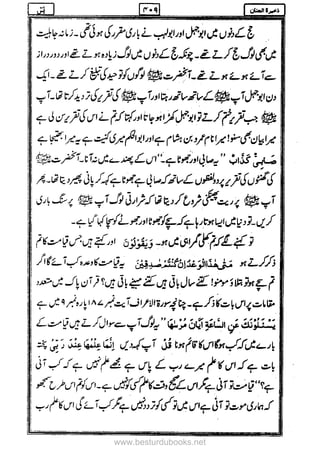 ذخيرة الجنان ۴۰۹ يٰسٓ
حج کے دنوں میں ابوجہل اور ابولہب نے باری مقرر کی ہوئی تھی۔ زمانہ جاہلیت
میں بھی لوگ حج کرتے تھے۔ چونکہ حج کے دنوں میں لوگ زیادہ ہوتے تھے اور دور دراز
سے آئے ہوئے ہوتے تھے۔ آنحضرت ﷺ لوگوں کو توحید کی تبلیغ کرتے تھے۔ ایک
دن ابوجہل آپ ﷺ کے ساتھ ساتھ رہتا اور آپ ﷺ کی تقریر کی تردید کیا کرتا تھا۔ آپ
ﷺ جب تقریر ختم کرتے تو ابوجہل کھڑا ہو جاتا اور کہتا کہ تم نے اس کی تقریر سن لی ہے
میرا بیان بھی سنو! میرا نام عمرو بن ہشام ہے اور ابوالحکم میری کنیت ہے یہ میرا بھتیجا ہے
صَابِئٌ كَذَّابٌ ”یہ صابی اور جھوٹا ہے۔“ اس کے پھندے میں نہ آنا۔ آنحضرت ﷺ
کی گھنٹوں کی تقریر پر دو لفظوں کے ساتھ کہ صابی ہے جھوٹا ہے کہہ کر پانی پھیر دیتا تھا۔ پھر
آپ ﷺ پر ریت پھینکنی شروع کر دیتا تھا کہ شرارتی لوگ آپ ﷺ پر سنگ باری
کریں۔ تو دنیا میں ایسا ہوتا رہا ہے کہ سچے کو جھوٹا اور جھوٹے کو سچا کہا گیا ہے۔
تو کہنے لگے کہ تم کھلی گمراہی میں ہو۔ وَيَقُوْلُوْنَ اور کہتے ہیں جس قیامت کا تم
ذکر کرتے ہو مَتٰى هٰذَا الْوَعْدُ اِنْ كُنْتُمْ صٰدِقِيْنَ یہ قیامت کا وعدہ کب آئے گا اگر
ہو تم سچے تو بتلاؤ مومنو! کتنے سال باقی ہیں کتنے مہینے باقی ہیں؟ قرآن پاک میں متعدد
مقامات پر اس بات کا ذکر ہے۔ چنانچہ سورۃ الاعراف آیت نمبر ۱۸۷ پارہ نمبر ۹ میں ہے
يَسْـَٔلُوْنَكَ عَنِ السَّاعَةِ اَيَّانَ مُرْسٰهَا ”یہ لوگ آپ سے سوال کرتے ہیں قیامت کے
بارے میں کہ کب ہو گا اس کا قائم ہونا قُلْ آپ کہہ دیں اِنَّمَا عِلْمُهَا عِنْدَ رَبِّيْ پختہ
بات ہے کہ اس کا علم میرے رب کے پاس ہے مجھے علم نہیں ہے کہ کب آنی
ہے؟“ قیامت تو آنی ہے مگر اس کے صحیح وقت کا علم کسی کو نہیں ہے۔ اس کو تم اس طرح سمجھو
کہ ہماری موت تو آنی ہے اس میں تو کسی کو تردد نہیں ہے مگر کب آئے گی اس کا علم رب
www.besturdubooks.net